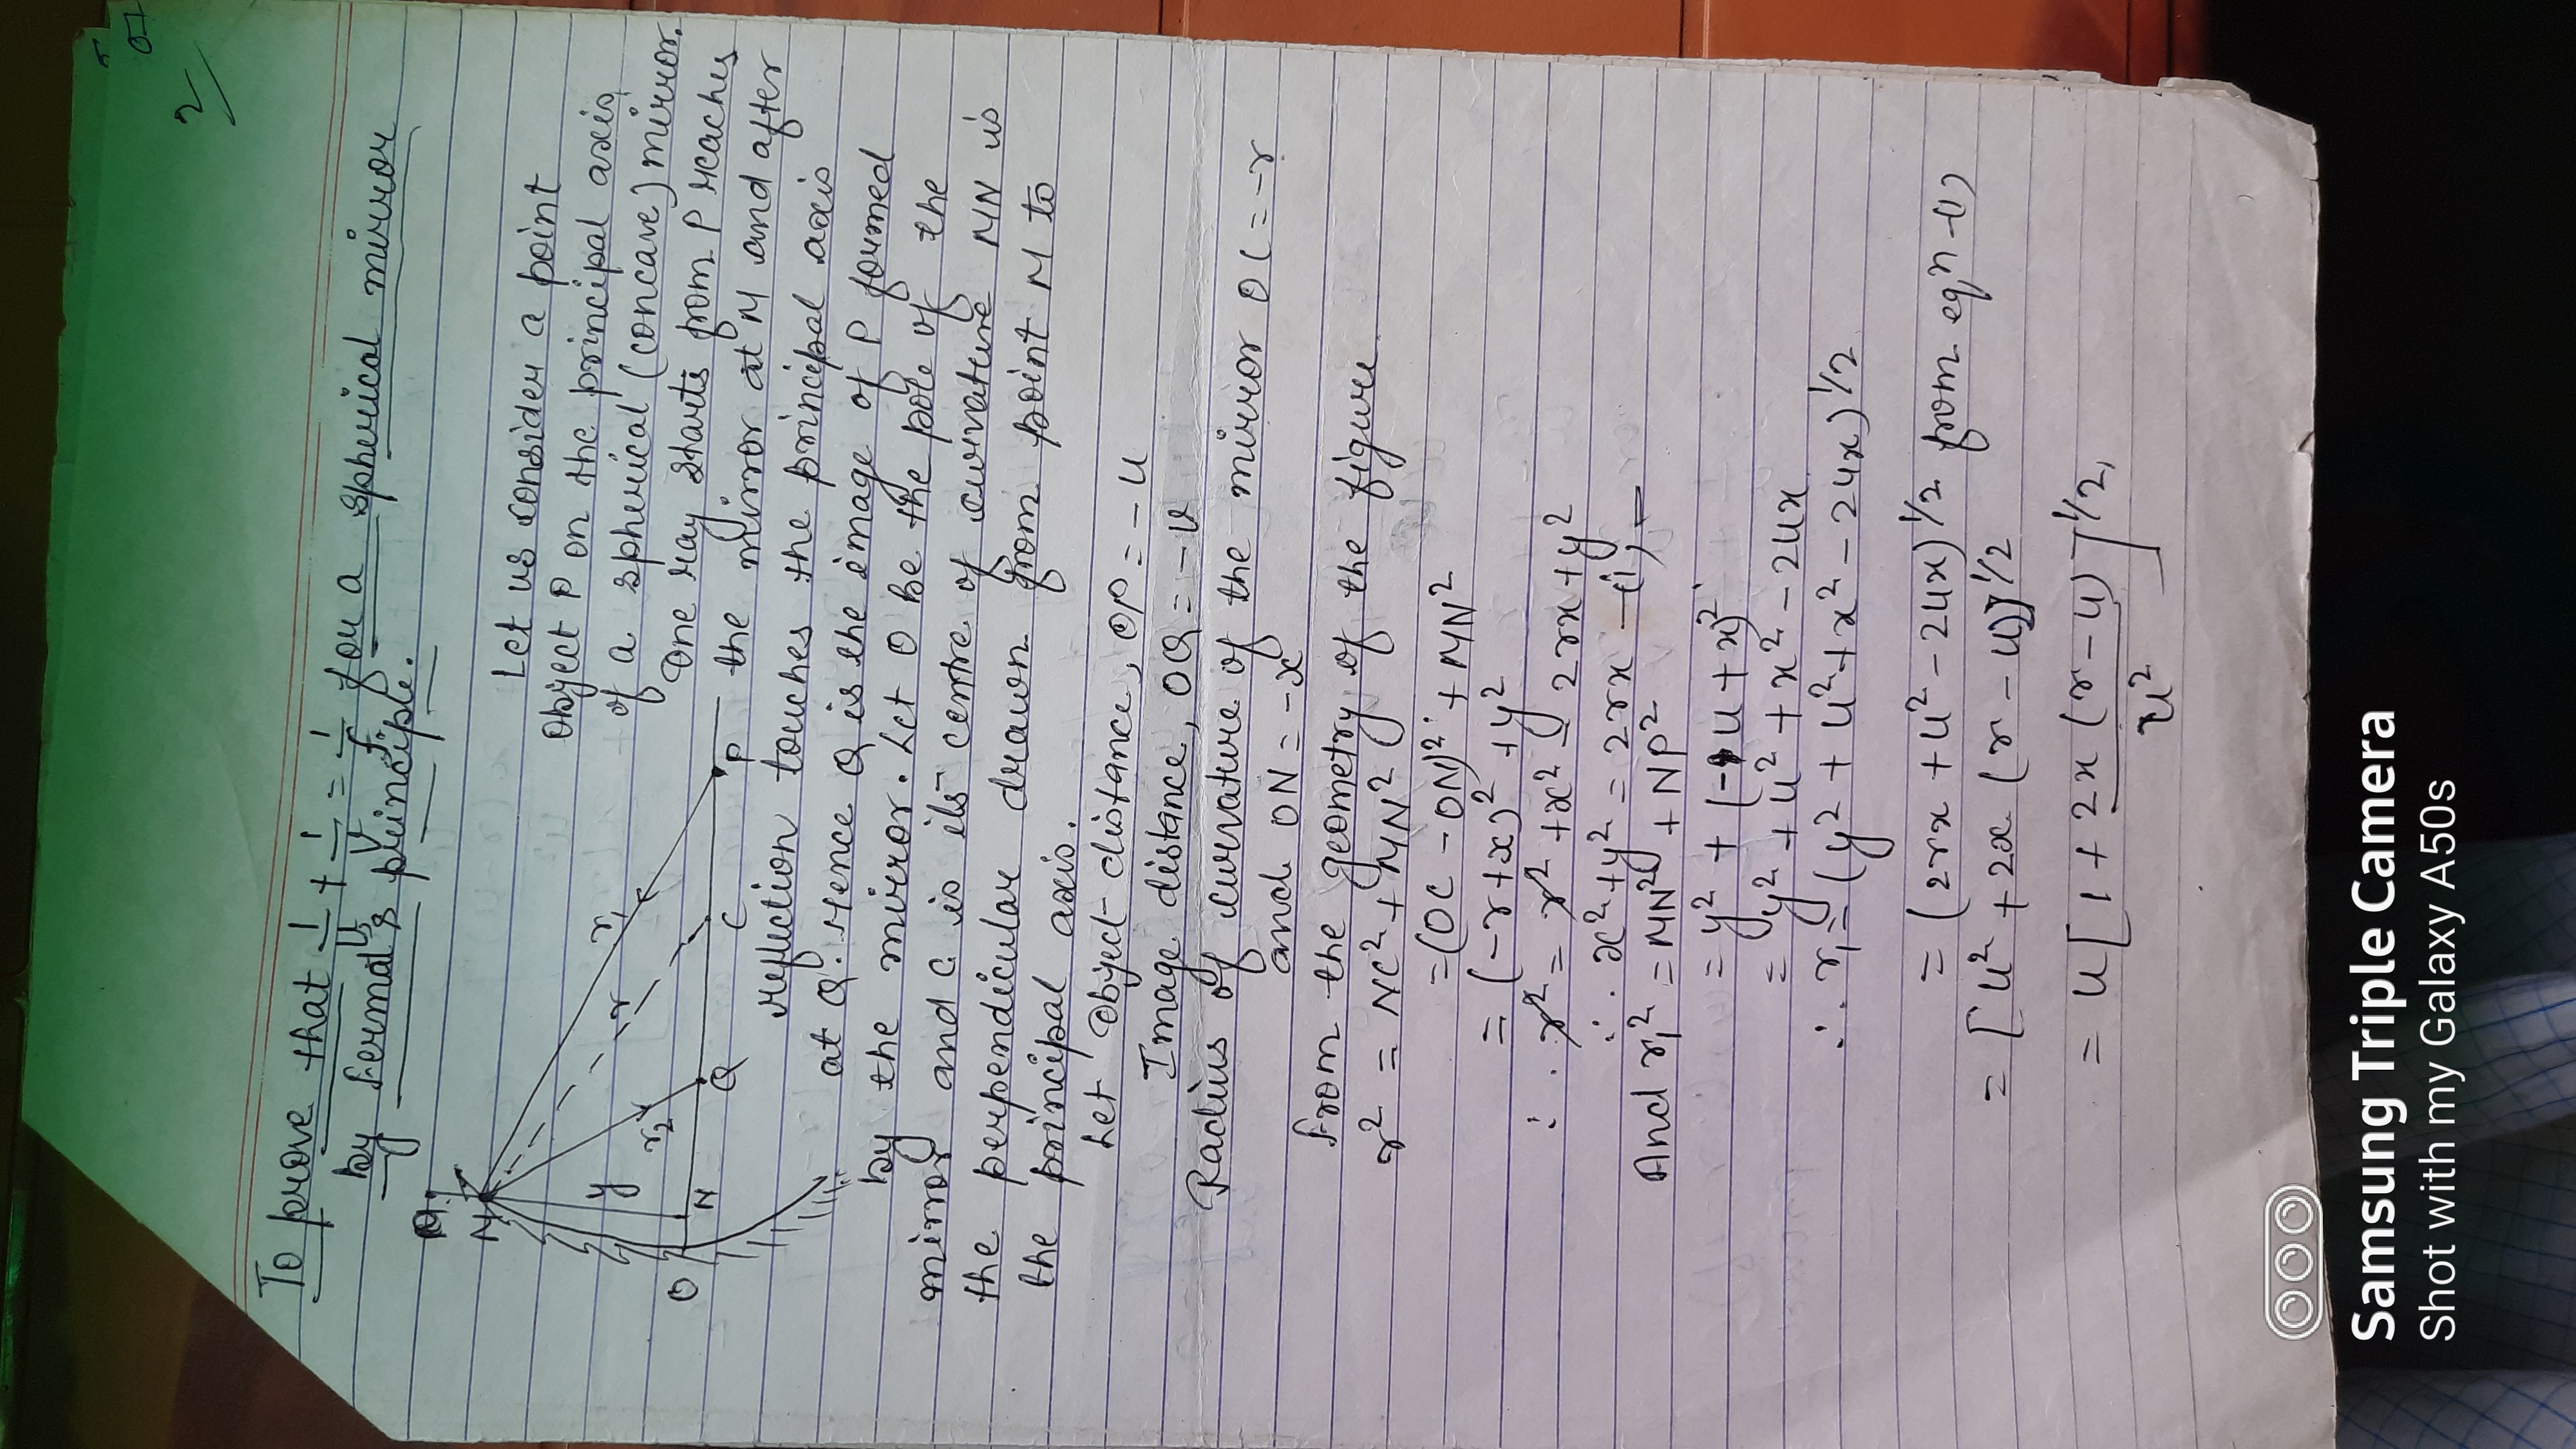 2
To prove that 1/u + 1/v = 1/f for a spherical mirror
by Fermat's principle.
Let us consider a point
object P on the principal axis
of a spherical (concave) mirror.
One ray starts from P reaches
the mirror at M and after
reflection touches the principal axis
at Q. Hence Q is the image of P formed
by the mirror. Let O be the pole of the
mirror and C is its centre of curvature MN is
the perpendicular drawn from point M to
the principal axis.
M
r1
r
r2
y
O
N
Q
C
P
Let object distance, OP = - u
Image distance, OQ = - v
Radius of curvature of the mirror OC = - r
and ON = - x
From the geometry of the figure
r² = NC² + MN²
= (OC - ON)² + MN²
= (- r + x)² + y²
∴ r² = r² + x² - 2rx + y²
∴ x² + y² = 2rx —(1)
And r1² = MN² + NP²
= y² + (- u + x)²
= y² + u² + x² - 2ux
∴ r1 = (y² + u² + x² - 2ux)^1/2
= (2rx + u² - 2ux)^1/2 from eqn -(1)
= [u² + 2x (r - u)]^1/2
= u [1 + 2x (r - u) / u²]^1/2
Samsung Triple Camera
Shot with my Galaxy A50s